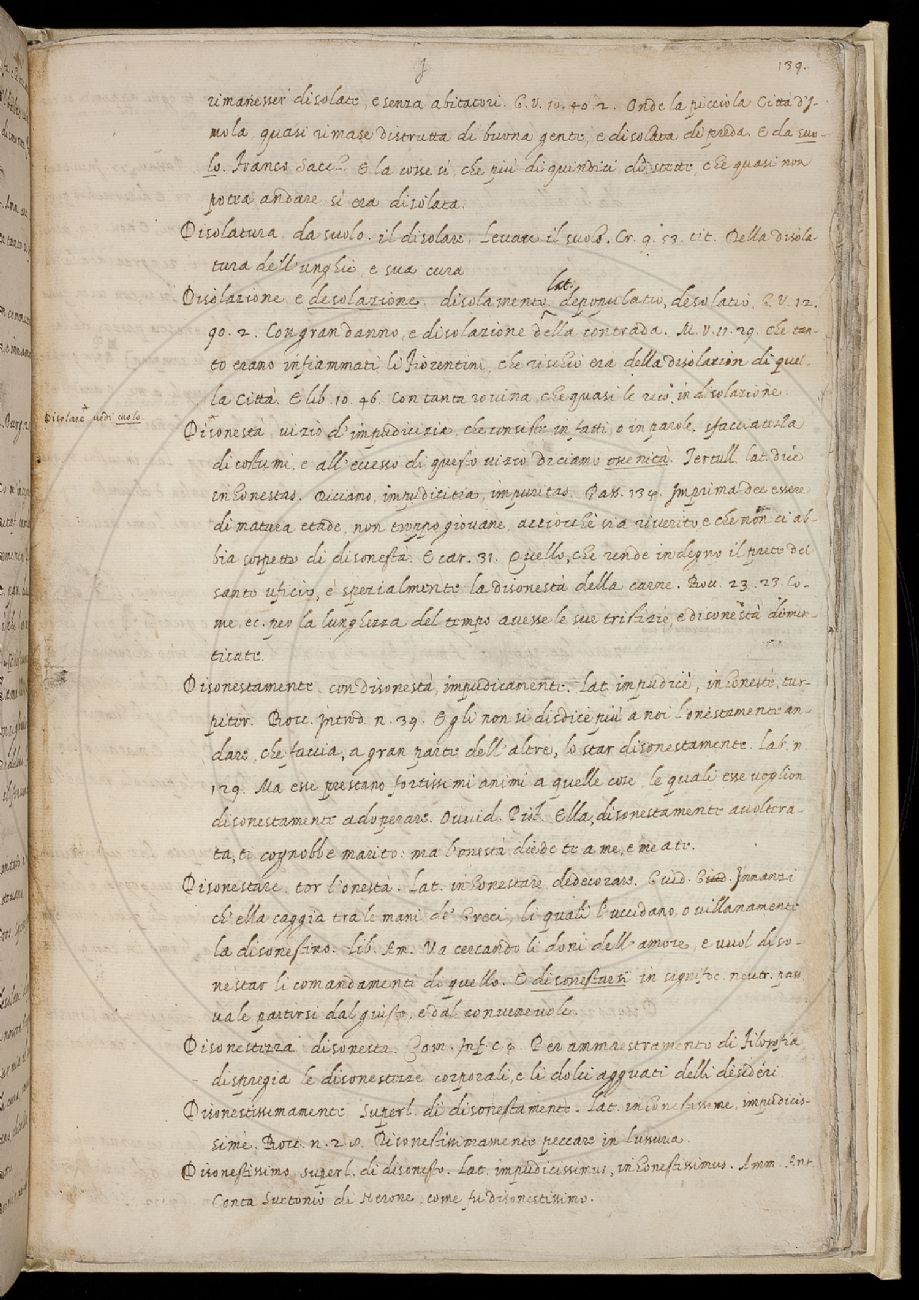 139.
rimanesser disolate, e senza abitatori. G. V. 10. 40. 2. Onde la picciola Città d'I-
mola quasi rimase distrutta di buona gente, e disolata di preda. E da suo-
lo. Franco Sacch. E la corse sì, che più di quindici dì stette, che quasi non
potea andare sì era disolata.
Disolatura da suolo. il disolare. Levare il suolo. Cr. 9. 53. tit. Della disola-
tura dell'unghie, e sua cura
Disolazione e desolazione. disolamento. lat. depopulatio, desolatio. G. V. 12.
90. 2. Con gran danno, e disolazione della contrada. M. V. 11. 29. che tan-
to erano infiammati li Fiorentini, che rischio era della disolazion di quel-
la Città. E lib. 10. 46. Con tanta rovina, che quasi le recò in disolazione.
Disolare vedi suolo.
Disonestà, vizio d'impudicizia, che consiste in fatti, o in parole. sfacciatezza
di costumi, e all'eccesso di questo vizio diciamo oscenità. Tertull. lat. dice
inhonestas. Diciamo, impudicitia, impuritas. Pass. 134. Imprima dee essere
di matura etade, non troppo giovane, acciocchè sia riverito e che non ci ab-
bia sospetto di disonestà. E car. 31. Quello, che rende indegno il prete del
santo uficio, è spezialmente la disonestà della carne. Bocc. 23. 23. Co-
me. ec. per la lunghezza del tempo avesse le sue tristizie, e disonestà dimen-
ticate.
Disonestamente. con disonestà, impudicamente. Lat. impudicè, inhonestè, tur-
piter. Bocc. Introd. n. 39. Egli non si disdice più a noi l'onestamente an-
dare, che faccia, a gran parte dell'altre, lo star disonestamente. Lab. n.
129. Ma esse prestano fortissimi animi a quelle cose, le quali esse voglion
disonestamente adoperare. Ovvid. Pist. Ella, disonestamente avoltera-
ta, ti cognobbe marito: ma l'onestà diede te a me, e me a te.
Disonestare. tor l'onestà. Lat. inhonestare, dedecorare. Guid. Innanzi
ch'ella caggia tra le mani de' Greci, li quali l'uccidano, o villanamente
la disonestino. Lib. Am. Va cercando li doni dell'amore, e vuol diso-
nestar li comandamenti di quello. E disonestarsi in signific. neutr. pass.
vale partirsi dal giusto, e dal convenevole.
Disonestezza disonestà. Com. Inf. c. 9. Per ammaestramento di Filosofia,
dispregia le disonestezze corporali, e li dolci agguati delli desideri
Disonestissimamente. Superl. di disonestamente. Lat. inhonestissime, impudicis-
sime. Bocc. n. 2. 8. Disonestissimamente peccare in lussuria.
Disonestissimo, superl. di disonesto. Lat. impudicissimus, inhonestissimus. Amm. Ant.
Conta Suetonio di Nerone, come fu disonestissimo.